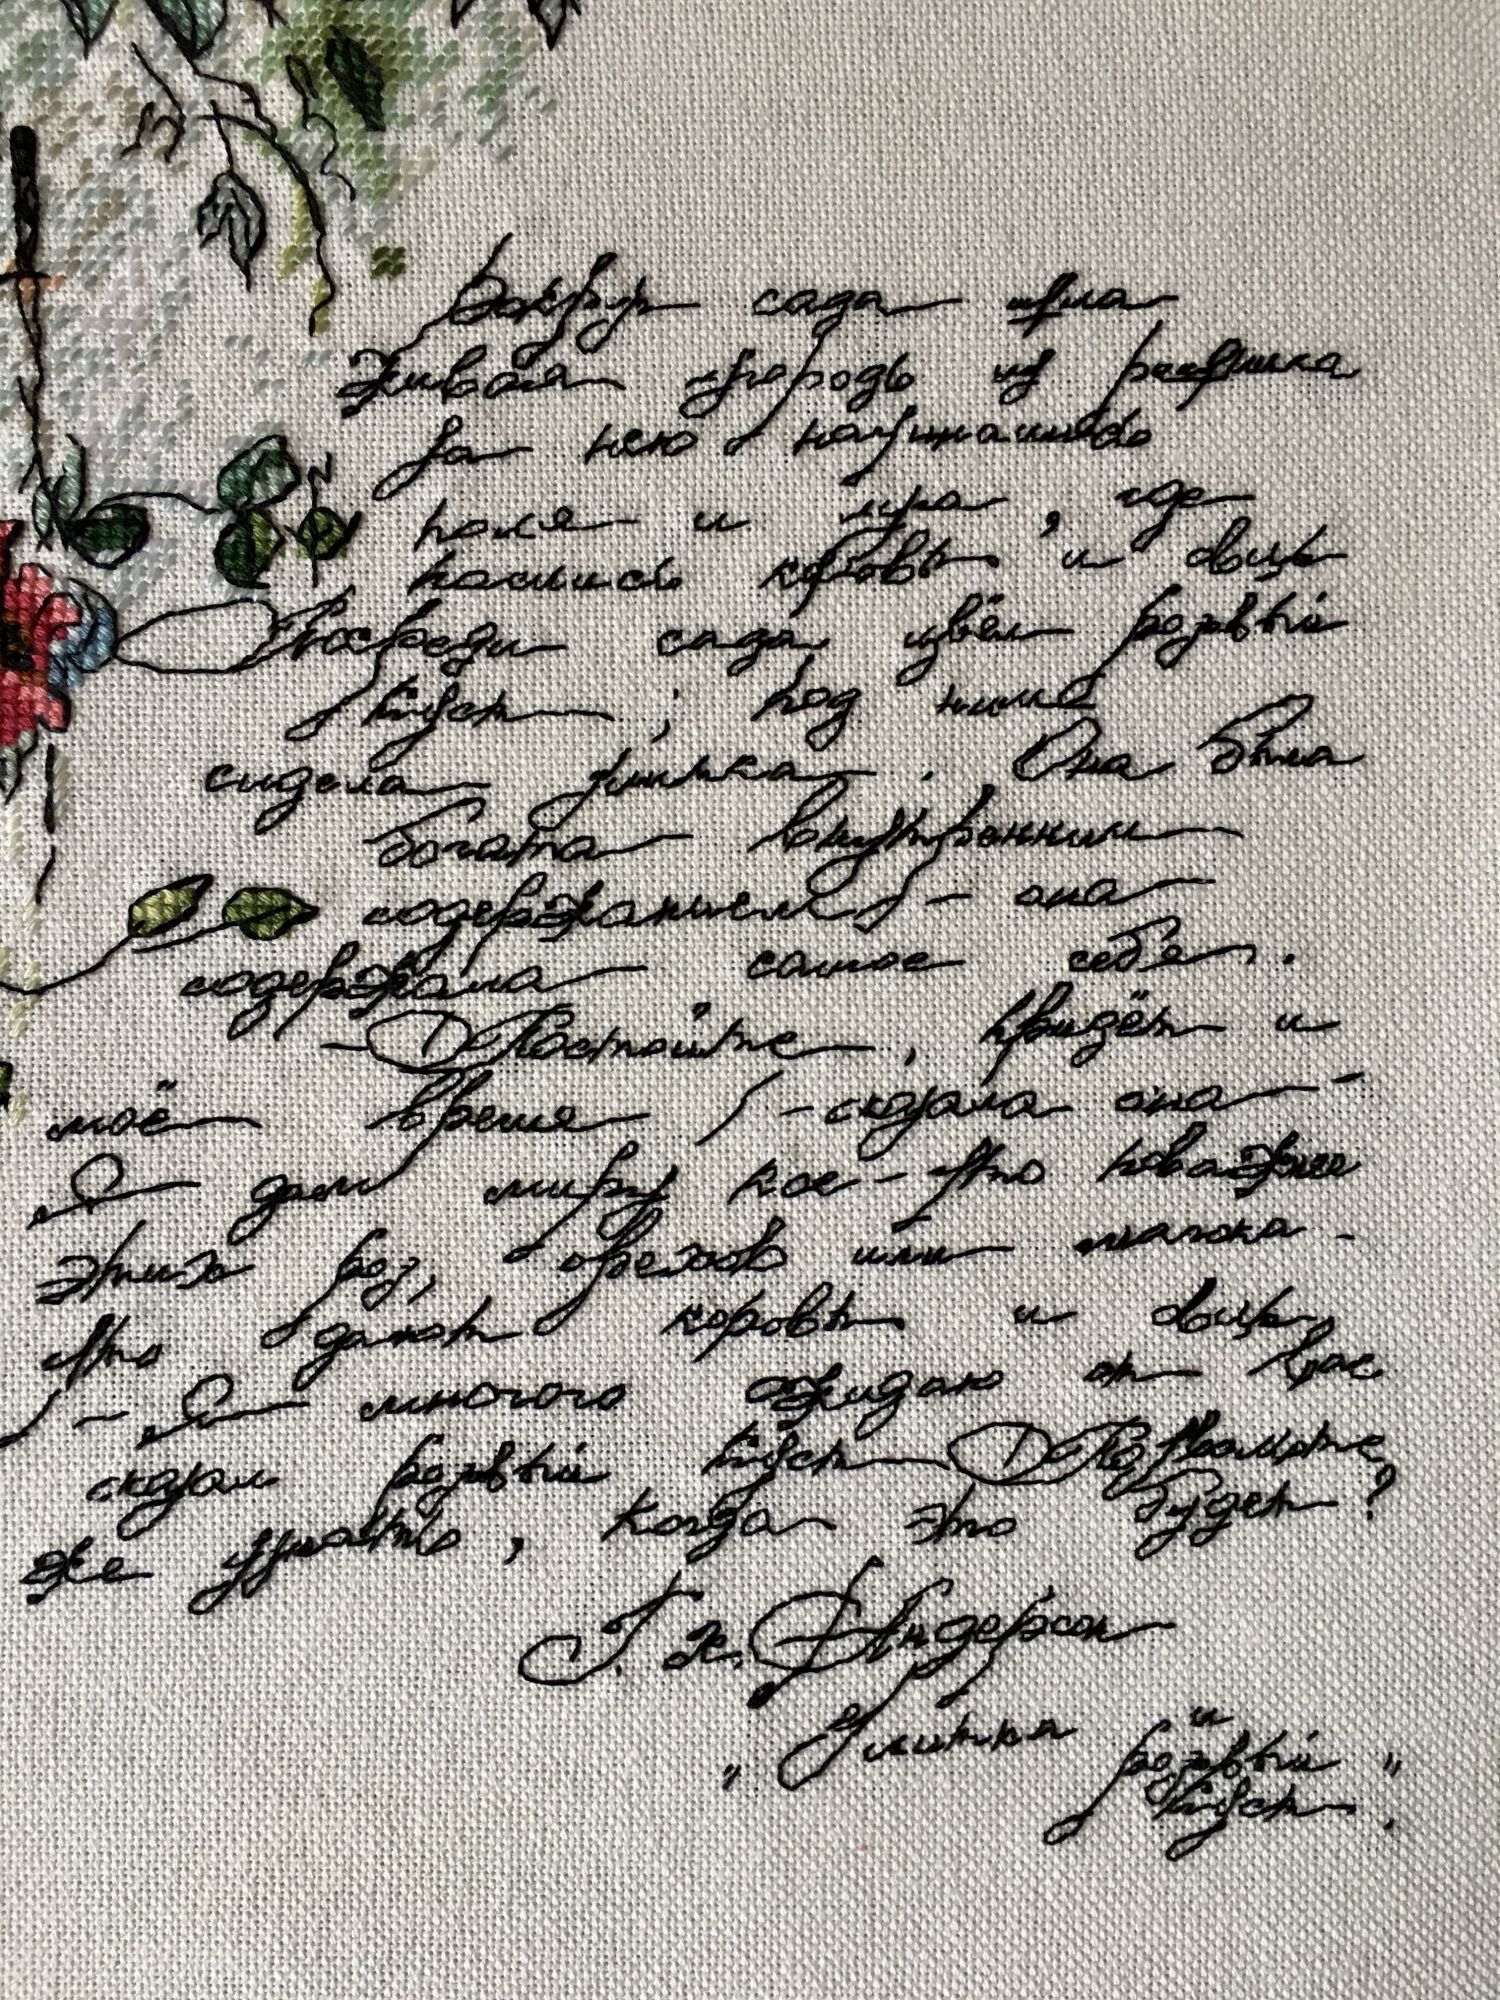 Вокруг сада шла
живая изгородь из орешника
За нею начинались
поля и луга, где
паслись коровы и овцы
Посреди сада цвёл розовый
куст; под ним
сидела улитка. Она была
богата внутренним
содержанием, - она
содержала самое себя.
- Постойте, придёт и
моё время, - сказала она -
Я дам миру кое-что поважнее
этих роз, орехов или молока -
что дают коровы и овцы.
- Я многого ожидаю от вас
сказал розовый куст Позвольте
же узнать, когда это будет?
Г. Х. Андерсен
"Улитка и
розовый
куст".